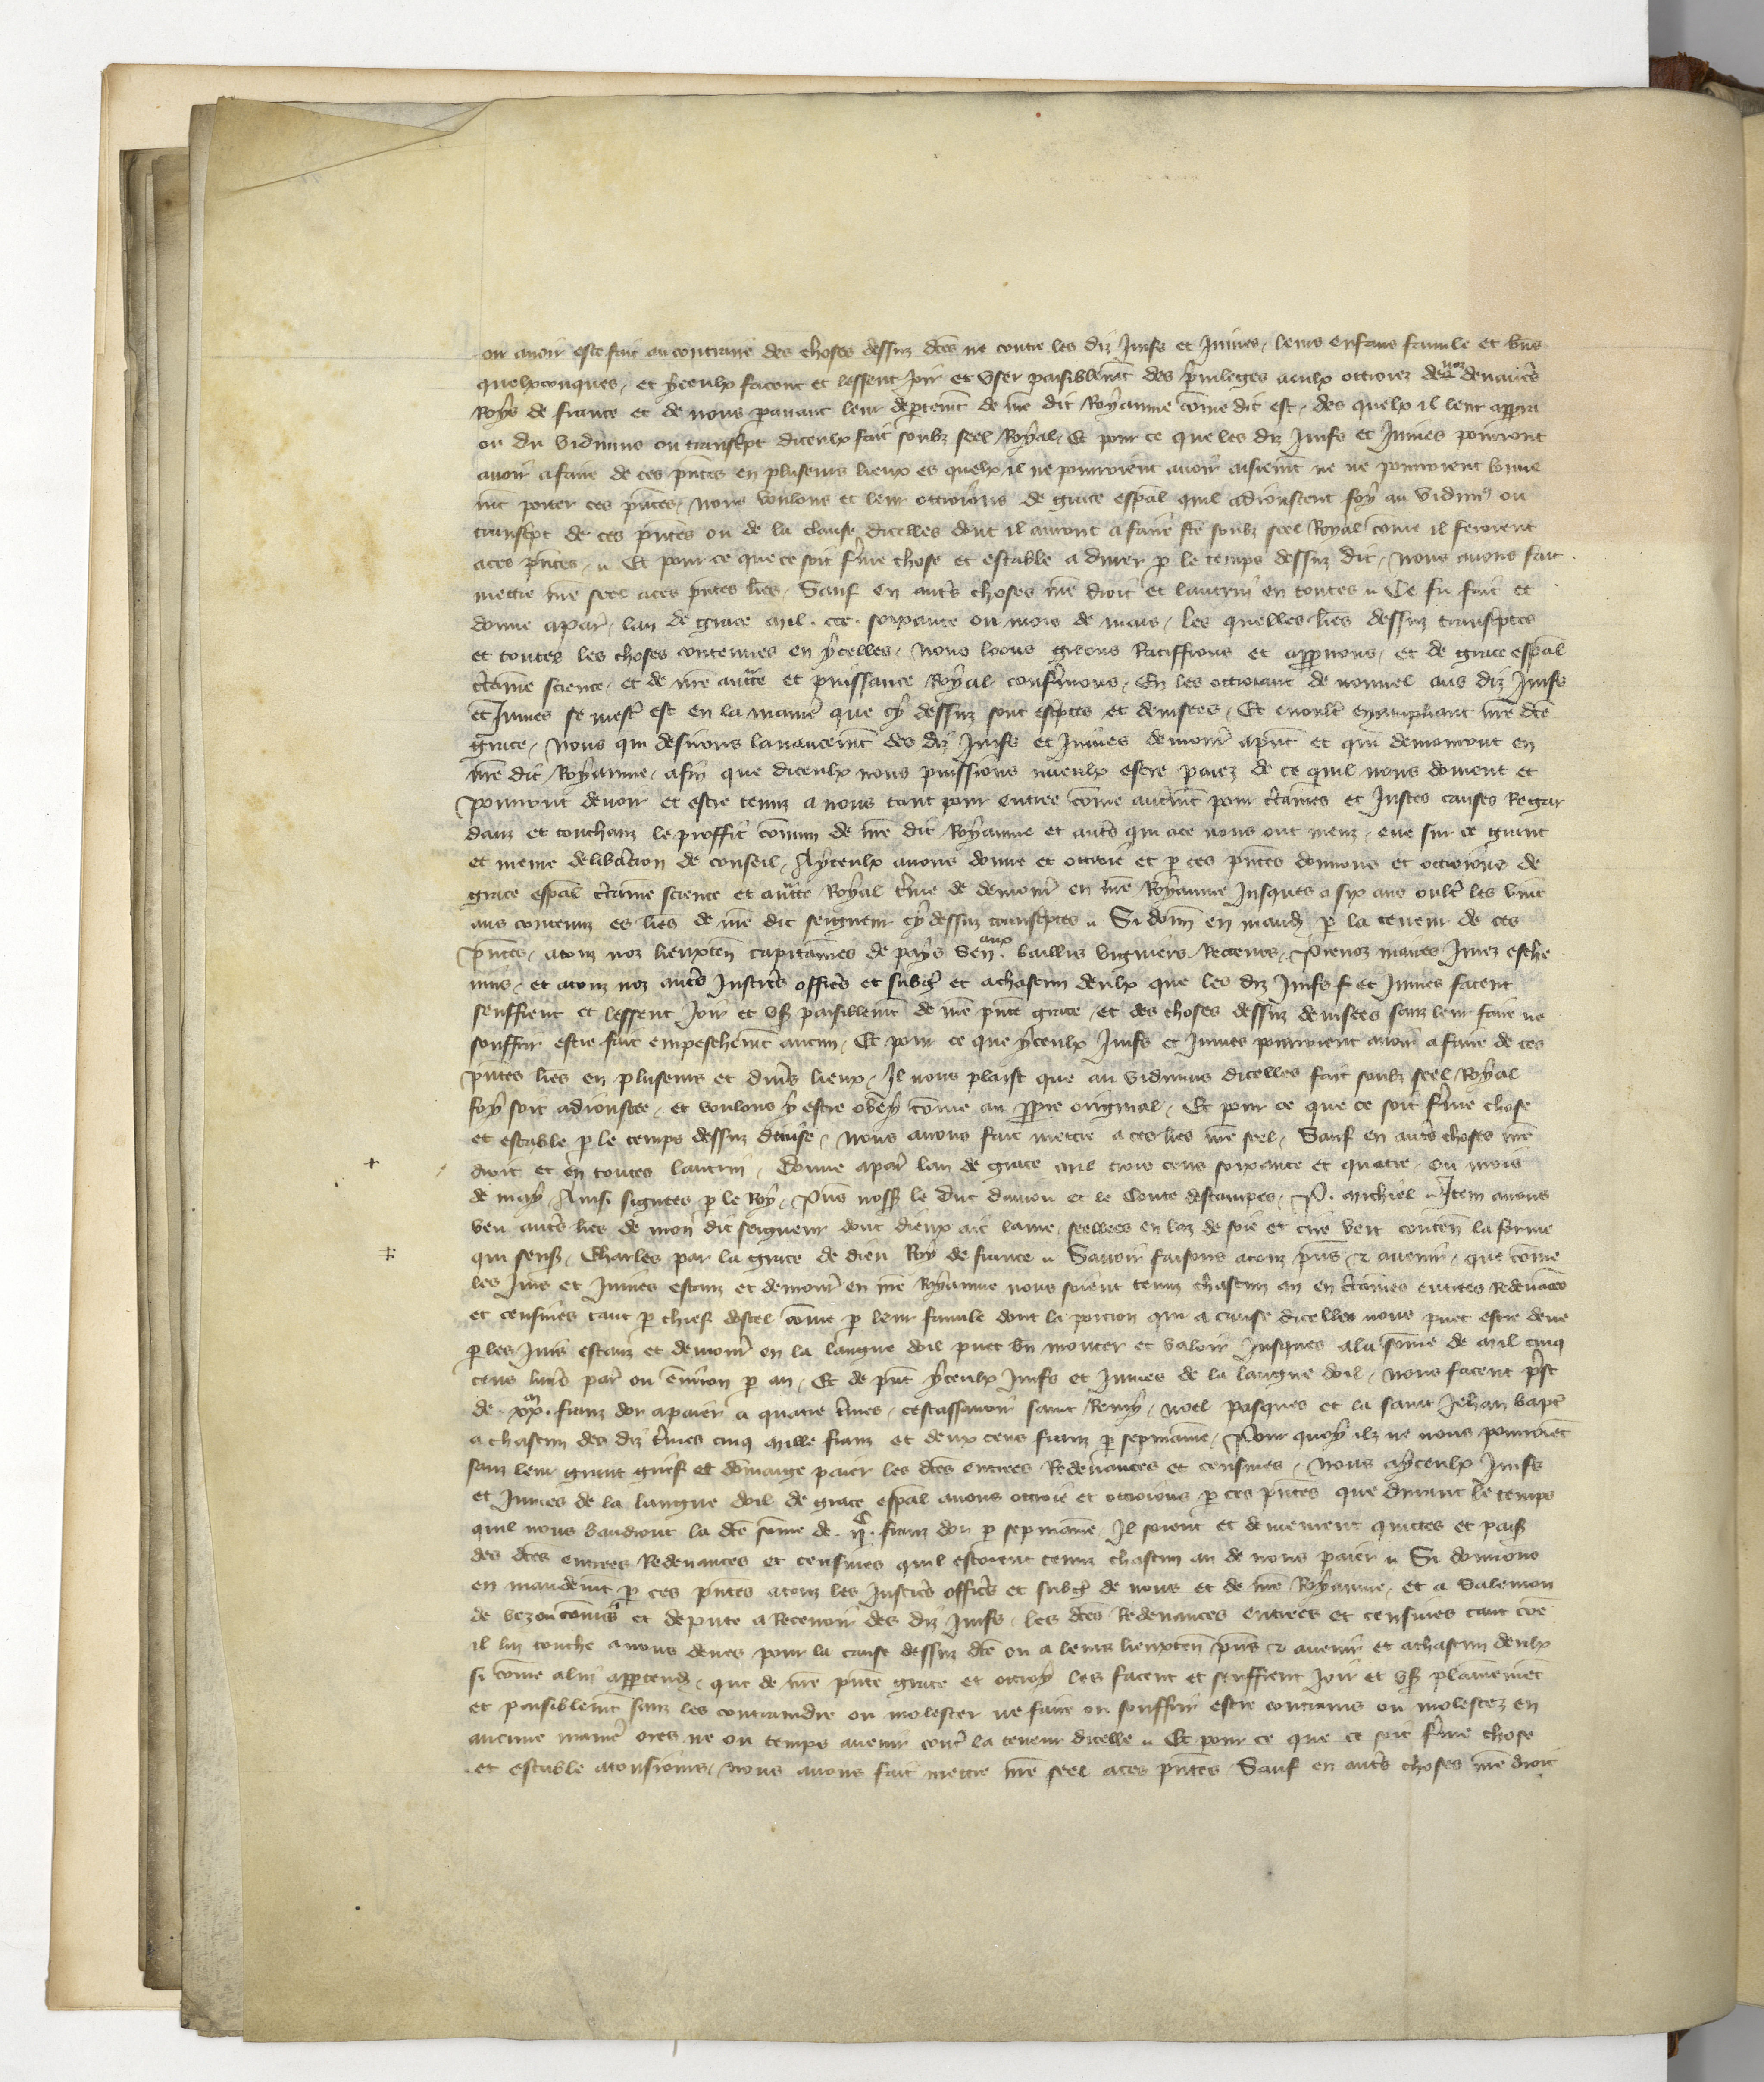 ou avoir este fait au contraire des choses dessuz dcēs ne contre les diz Juifs et Juives, leurs enfans famile et biēs
quelxconques, et yceulx facent et lessent joir et user paisiblemēt des privileges a eulx ottroiez de noz devancērs
Roys de france et de nous paravant leur deptemēt de nrē dit Royaume cōme dit est, des quelx il leur apparra
ou du vidimus ou transcript diceulx fait soubz seel Royal, Et pour ce que les diz Juifs et Juives pourront
avoir a faire de ces pñtes en pluseurs lieux es quelx il ne pourroient avoir aisiemēt ne ne pourroient bonne
mēt porter ces pñtes, Nous voulons et leur ottroions de grace espāl quil adjoustent foy au vidimus ou
transcpt de ces pñtes ou de la clause dicelles dont il auront a faire fēt soubz seel Royal cōme il feroient
a ces pñtes, Et pour ce que ce soit ferme chose et estable a durer p le temps dessuz dit, Nous avons fait
mettre nrē seel a ces pñtes lrēs, Sauf en autrēs choses nrē droit et lautrui en toutes Ce fu fait et
donne a par̄, lan de grace mil. ccc. soixante ou mois de mars, les quelles lrēs dessuz transcriptes
et toutes les choses contenues en ycelles, Nous loons greons Ratiffions et approuvons, et de grace espāl
c̄taine science, et de nrē auctte et puissance Royal confermons, En les ottroiant de nouvel aus diz Juifs
et Juives se mest̄ est en la manier̄ que cy dessuz sont escriptes et devisees, Et en oult̄ en ampliant nrē dcē
grace, Nous qui desirons lavancemēt des diz Juifs et Juives demour̄ a pñt et qui demourront en
nrē dit Royaume, afin que diceulx nous puissions mieulx estre paiez de ce quil nous doivent et
pourront devoir et estre tenuz a nous tant pour entree cōme autremēt pour c̄taines et Justes causes Regar
danz et touchanz le proffit cōmun de nrē dit Royaume et autrēs qui a ce nous ont meuz, eue sur ce grant
et meure delibācion de conseil, A yceulx avons donne et ottroie et p ces pñtes donnons et ottroions de
grace espāl c̄taine science et auctte Royal t̄me de demour̄ en nrē Royaume Jusques a six ans oult̄ les vint
ans contenuz es lrēs de nrē dit seigneur cy dessuz transcriptes Si donn̄ en mand̄ p la teneur de ces
pñtes, a touz noz lieuxten̄ capitaines de pays Sen̄aux. bailliz viguiers Receveurs, Prevoz maires Jurez esche
vins, et a touz noz autrēs Justicīrs officīrs et subḡ et a chascun deulx que les diz Juifs et Juives facent
seuffrent et lessent Joir et us̄ paisiblemēt de nrē pñte grace, et des choses dessuz devisees sanz leur faire ne
souffrir estre fait empeschemēt aucun, Et pour ce que yceulx Juifs et Juives pourroient avoir a faire de ces
pñtes lrēs en pluseurs et divērs lieux, Il nous plaist que au vidimus dicelles fait soubz seel Royal
foy soit adjoustee, et voulons y estre obey cōme au pp̄re original, Et pour ce que ce soit ferme chose
et estable p le temps dessuz devise, Nous avons fait mettre a ces lrēs nrē seel, Sauf en autrēs choses nrē
droit et en toutes lautrui, Donne a par̄ lan de grace mil trois cens soixante et quatre, ou mois
de may, Ainsi signees p le Roy, Pñs noss̄ le duc danjou et le Conte destampes, P. michiel Item avons
veu autrēs lrēs de mon dit seigneur dont dieux ait lame, seellees en laz de soie et cire vert conten̄ la forme
qui sens̄, Charles par la grace de dieu Roy de france Savoir faisons a touz pñs & avenir, que cōme
les Juis et Juives estanz et demour̄ en nrē Royaume nous soient tenuz chascun an en c̄taines entrees Redevāces
et censives tant p chief dostel cōme p leur famile dont la porcion qui a cause dicelles nous puet estre deue
p les Juis estanz et demour̄ en la langue doil puet bn̄ monter et valoir Jusques a la sōme de mil cinq
cens livrēs par̄ ou environ p an, Et de pñt yceulx Juifs et Juives de la langue doil, Nous facent prest
de xxm. frans dor a paier a quatre t̄mes, cestassavoir saint Remy, noel pasques et la saint Jehan bapt̄
a chascun des diz t̄mes cinq mille frans et deux cens frans p sepmaine, Pour quoy ilz ne nous pourroiēt
sanz leur grant grief et dōmaige paier les dcēs entrees Redevances et censives, Nous a yceulx Juifs
et Juives de la langue doil de grace espāl avons ottroie et ottroions p ces pñtes que durant le temps
quil nous baudront la dcē sōme de .ijc. frans dor p sepmaine, Il soient et demeurent quittes et pais̄
des dcēs entrees Redevances et censives quil estoient tenuz chascun an de nous paier Si donnons
en mandemēt p ces pñtes a touz les Justicīrs officīrs et subḡ de nous et de nrē Royaume, et a Salemon
de vezou cōmis et depute a Recevoir des diz Juifs, les dcēs Redevances entrees et censives tant cōe
il luy touche a nous deues pour la cause dessuz dcē ou a leurs lieuxten̄ pñs & avenir et a chascun deulx
si cōme a lui appartend̄, que de nrē pñte grace et ottroy les facent et seuffrent Joir et us̄ plainemēt
et paisiblemēt sanz les contraindre ou molester ne faire ou souffrir estre contrains ou molestez en
aucune manier̄ ores ne ou temps avenir cont̄ la teneur dicelle Et pour ce que ce soit ferme chose
et estable a tousjours, Nous avons fait mettre nrē seel a ces pñtes Sauf en autrēs choses nrē droit